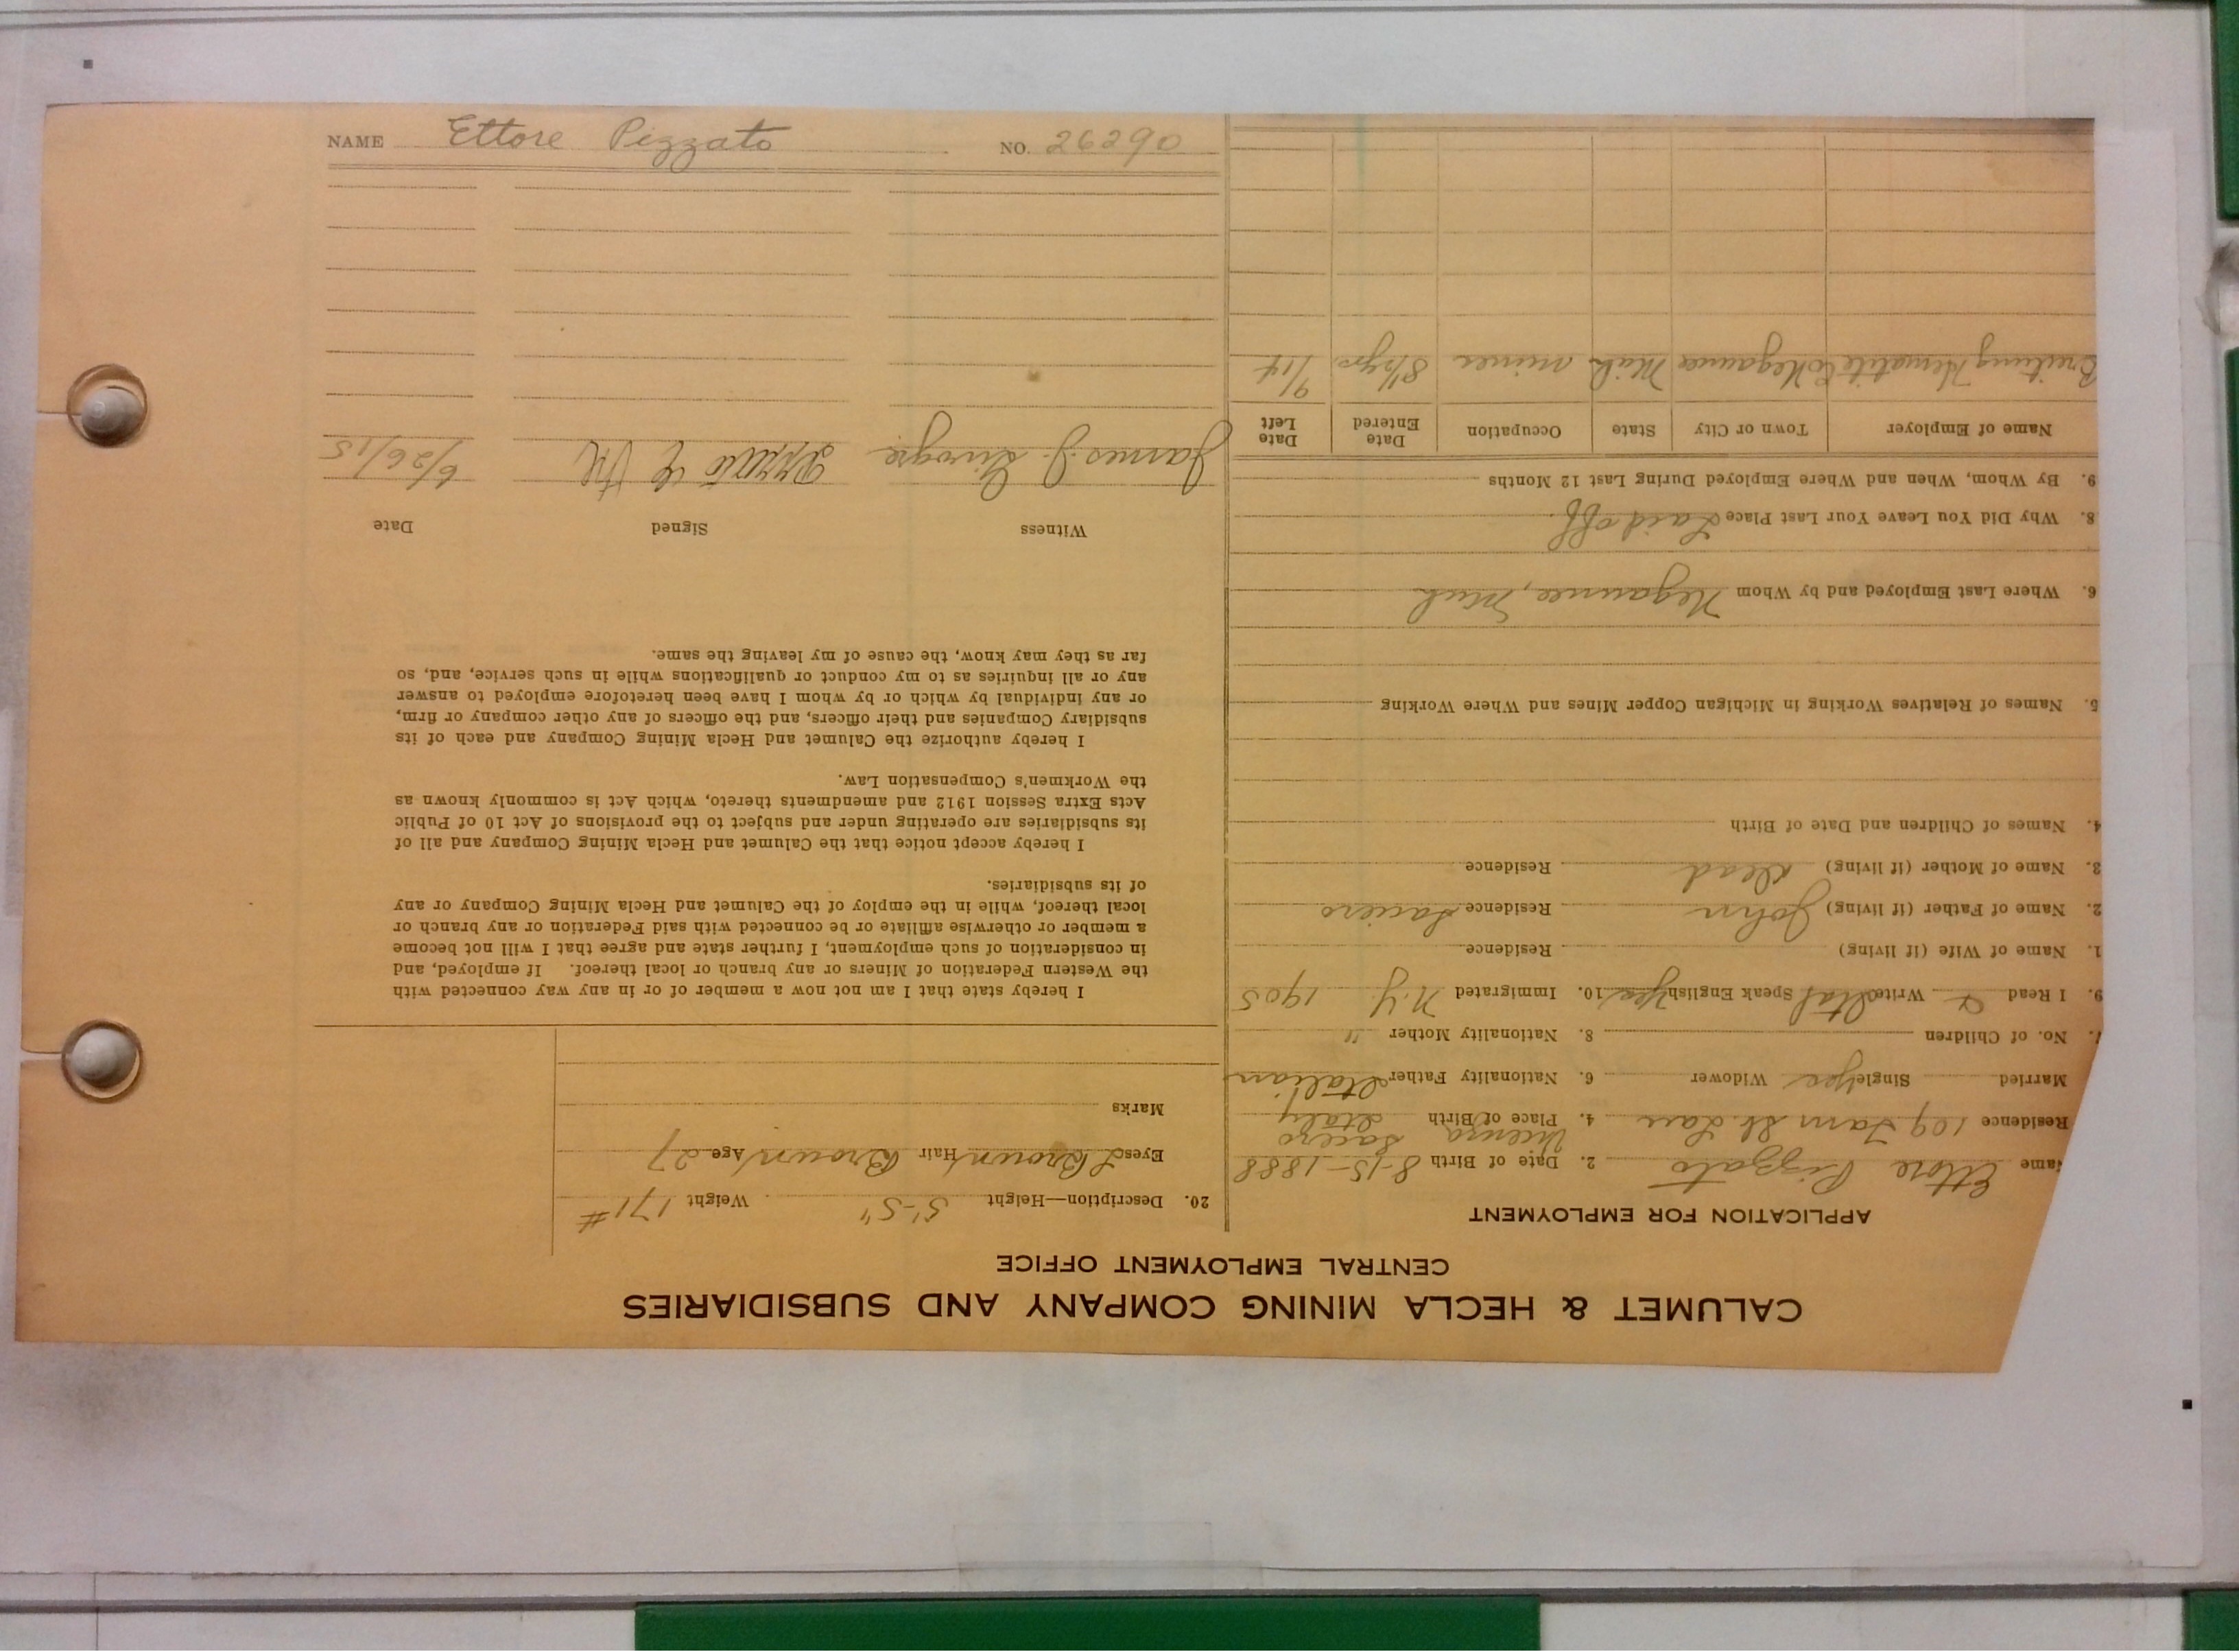 NAME Ettore Pezzato NO. 26290
CALUMET & HECLA MINING COMPANY AND SUBSIDIARIES
CENTRAL EMPLOYMENT OFFICE
APPLICATION FOR EMPLOYMENT
Name Ettore Pizzato 2. Date of Birth 8-15-1888
Vicenza Sacero
Residence 109 Tam St. Laur 4. Place of Birth Italy
Married Single yes Widower 6. Nationality Father Italian
7. No. of Children 8. Nationality Mother "
9. I Read & Write Ital Speak English yes 10. Immigrated N.Y. 1905
1. Name of Wife (if living) Residence
2. Name of Father (if living) John Residence Saciero
3. Name of Mother (if living) Dead Residence
4. Names of Children and Date of Birth
5. Names of Relatives Working in Michigan Copper Mines and Where Working
6. Where Last Employed and by Whom Negaunee, Mich
8. Why Did You Leave Your Last Place Laid off.
9. By Whom, When and Where Employed During Last 12 Months
Name of Employer Town or City State Occupation Date Entered Date Left
Breitung Hematite Co Negaunee Mich miner 8 1/2 yrs 9/14
20. Description—Height 5'-5" Weight 171#
Eyes L Brown Hair Brown Age 27
Marks
I hereby state that I am not now a member of or in any way connected with
the Western Federation of Miners or any branch or local thereof. If employed, and
in consideration of such employment, I further state and agree that I will not become
a member or otherwise affiliate or be connected with said Federation or any branch or
local thereof, while in the employ of the Calumet and Hecla Mining Company or any
of its subsidiaries.
I hereby accept notice that the Calumet and Hecla Mining Company and all of
its subsidiaries are operating under and subject to the provisions of Act 10 of Public
Acts Extra Session 1912 and amendments thereto, which Act is commonly known as
the Workmen's Compensation Law.
I hereby authorize the Calumet and Hecla Mining Company and each of its
subsidiary Companies and their officers, and the officers of any other company or firm,
or any individual by which or by whom I have been heretofore employed to answer
any or all inquiries as to my conduct or qualifications while in such service, and, so
far as they may know, the cause of my leaving the same.
Witness Signed Date
James J. 6/26/15